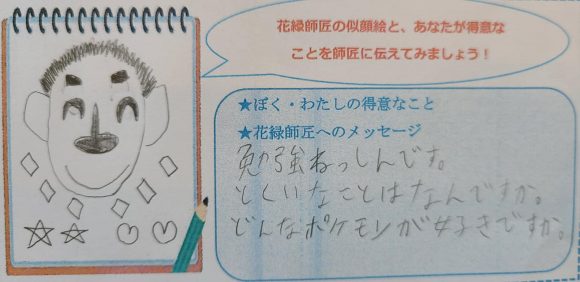 花緑師匠の似顔絵と、あなたが得意な
ことを師匠に伝えてみましょう！
★ぼく・わたしの得意なこと
★花緑師匠へのメッセージ
勉強ねっしんです。
とくいなことはなんですか。
どんなポケモンが好きですか。